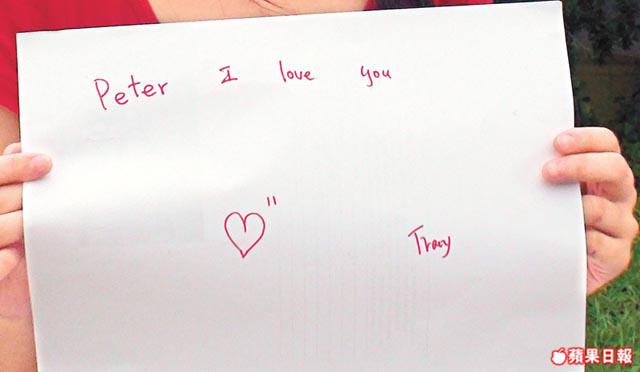 Peter I love you
Tracy
蘋果日報